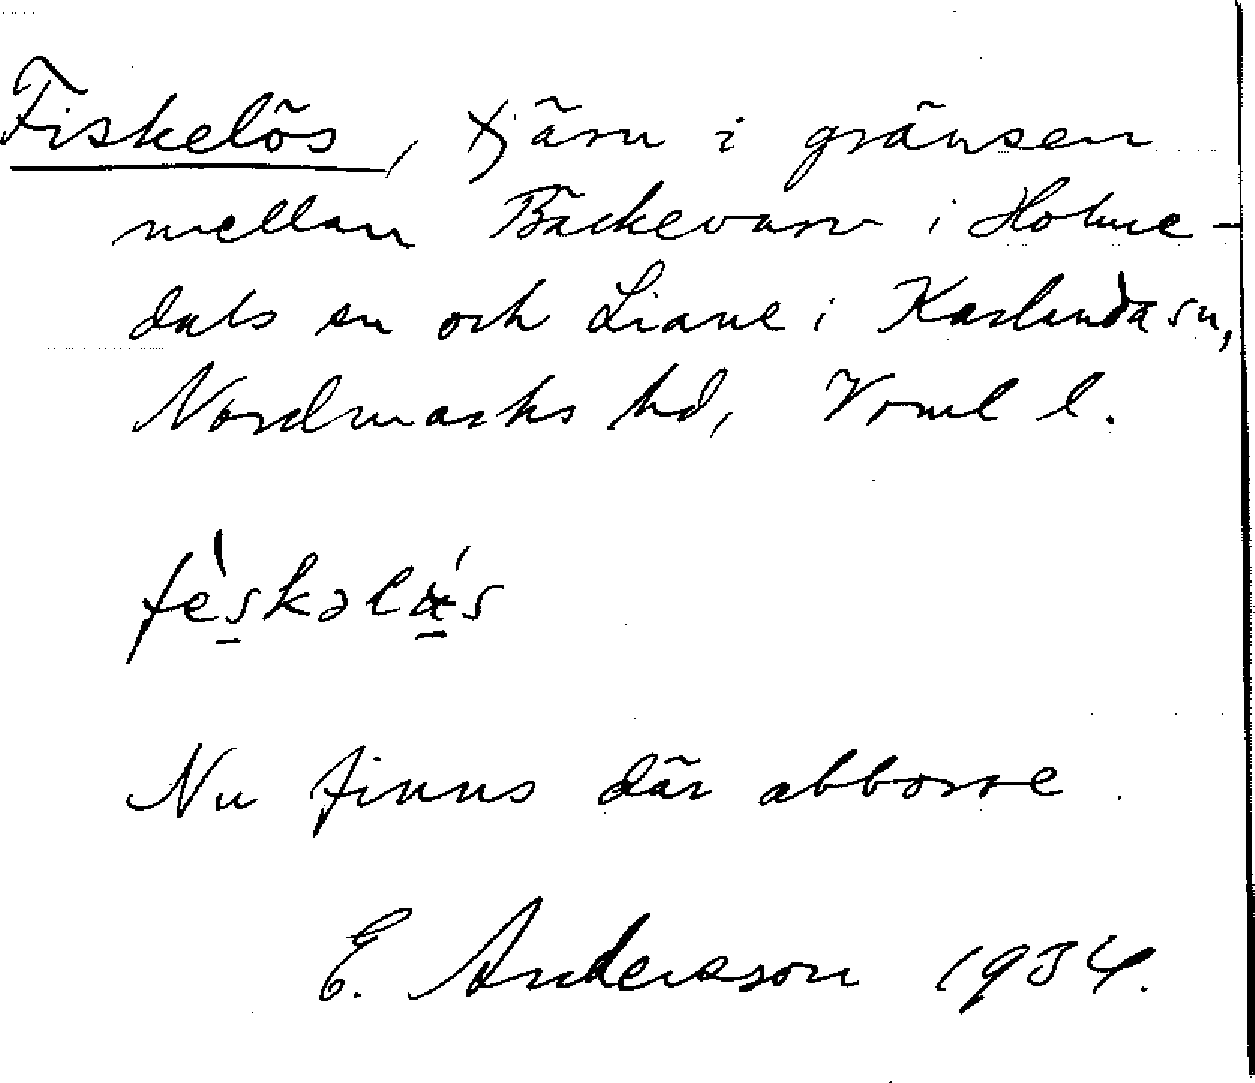 Fiskelös, tjärn i gränsen
mellan Bäckevarv i Holme-
dals sn och Liane i Karlanda sn,
Nordmarks hd, Vrml l.
fèskəlás
Nu finns där abborre.
E. Andersson 1934.